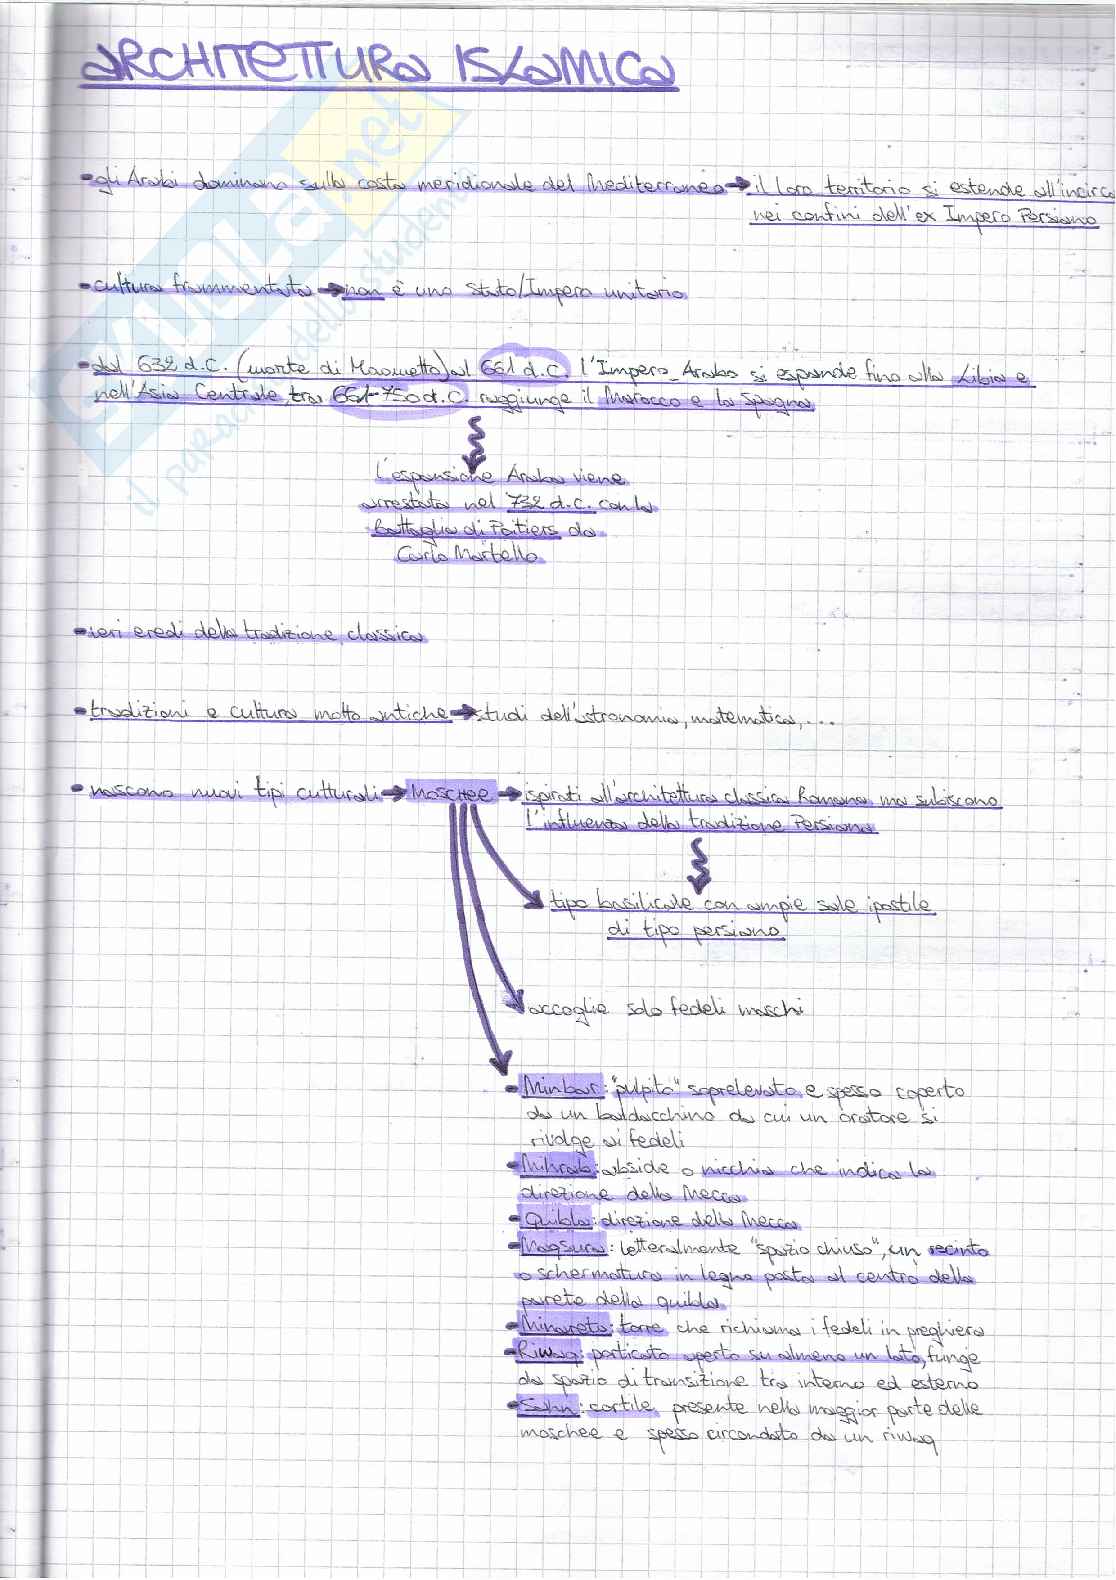 ARCHITETTURA ISLAMICA
- gli Arabi dominano sulla costa meridionale del Mediterraneo → il loro territorio si estende all'incirca
nei confini dell'ex Impero Persiano
- cultura frammentata → non è uno stato/Impero unitario
- dal 632 d.C. (morte di Maometto) al 661 d.C. l'Impero Arabo si espande fino alla Libia e
nell'Asia Centrale, tra 661-750 d.C. raggiunge il Marocco e la Spagna
L'espansione Araba viene
arrestata nel 732 d.C. con la
Battaglia di Poitiers da
Carlo Martello
- veri eredi della tradizione classica
- tradizioni e cultura molto antiche → studi dell'astronomia, matematica,...
- nascono nuovi tipi culturali → MOSCHEE → ispirati all'architettura classica Romana ma subiscono
l'influenza della tradizione Persiana
tipo basilicale con ampie sale ipostile
di tipo persiano
accoglie solo fedeli maschi
- Minbar: "pulpito" soprelevato e spesso coperto
da un baldacchino da cui un oratore si
rivolge ai fedeli
- Mihrab: abside o nicchia che indica la
direzione della Mecca
- Quibla: direzione della Mecca
- Maqsura: letteralmente "spazio chiuso", un recinto
o schermatura in legno posta al centro della
parete della quibla
- Minareto: torre che richiama i fedeli in preghiera
- Riwaq: porticato aperto su almeno un lato, funge
da spazio di transizione tra interno ed esterno
- Sahn: cortile presente nella maggior parte delle
moschee e spesso circondato da un riwaq
SKUOLA.net
il paradiso dello studente